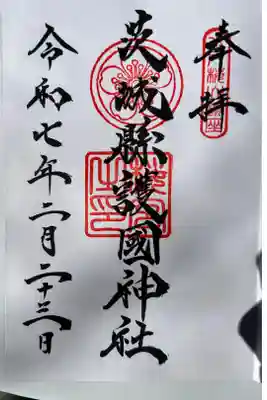 奉拝
茨城縣護國神社
令和七年二月二十三日